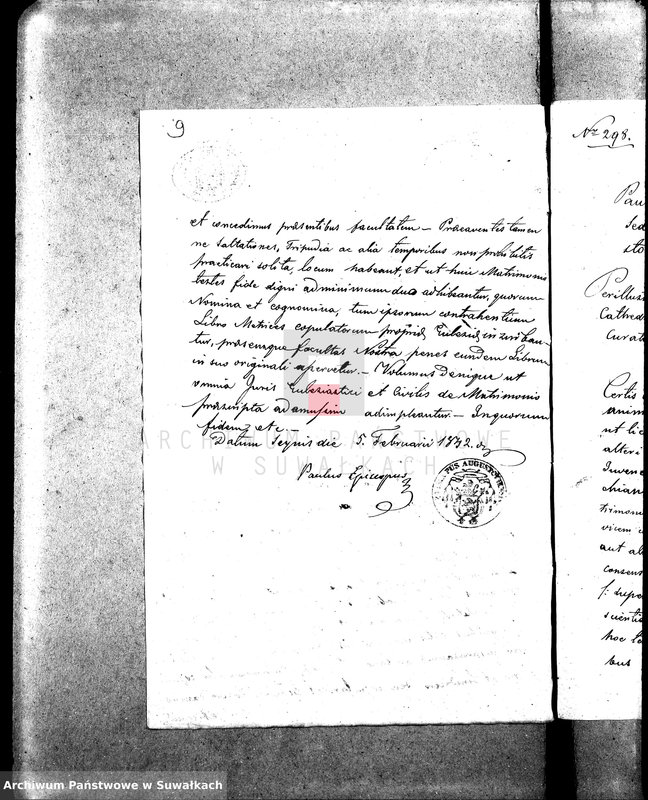 9
et concedimus praesentibus facultatem – Praecaventes tamen
ne Saltationes, Tripudia ac alia temporibus non prohibitis
practicari solita, locum habeant, et ut huic Matrimonio
testes fide digni ad minimum duo adhibeantur, quorum
Nomina et cognomina, tum ipsorum contrahentium
Libro Matrices copulatorum propriae Ecclesiae inscriban-
tur, praesensque facultas Nostra penes eundem Librum
in suo originali asservetur. – Volumus denique ut
omnia Juris Ecclesiastici et Civilis de Matrimonio
praescripta ad amussim adimpleantur. – In quorum
fidem etc –
Datum Seynis die 5. Februarii 1832.
Paulus Episcopus
ARCHIWUM PAŃSTWOWE
W SUWAŁKACH
Nr 298.
Pau
Sed
sto
Perillus
Cathed
Curat
Certis
anim
ut lic
alteri
Juven
chian
trimon
vicem
aut al
consen
f: supe
scienti
hoc
bus
Archiwum Państwowe w Suwałkach